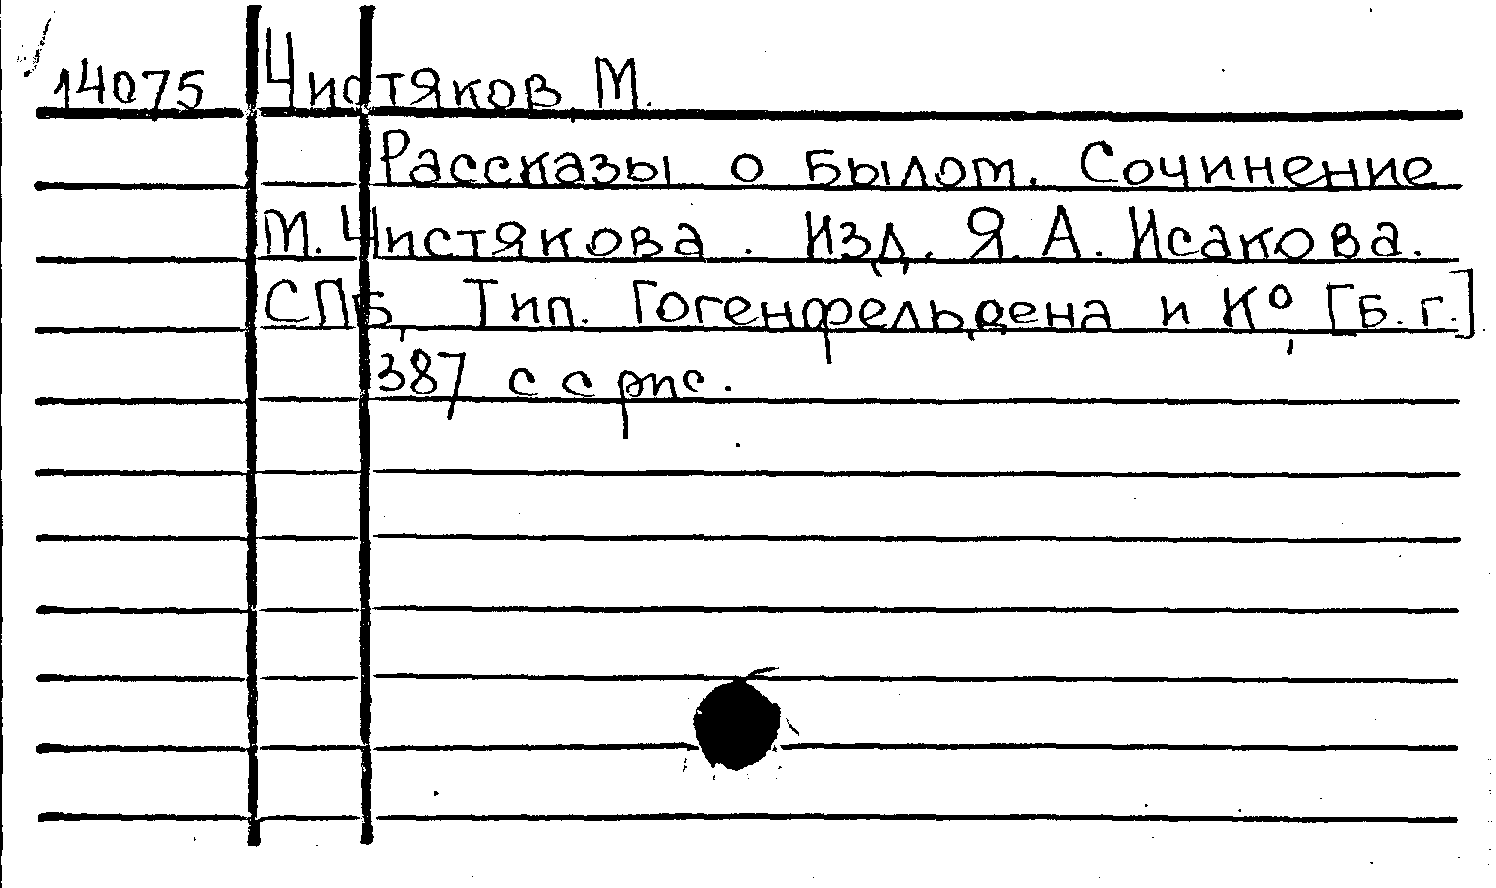 14075 Чистяков М.
Рассказы о былом. Сочинение
М. Чистякова. Изд. Я. А. Исакова.
СПБ, Тип. Гогенфельдена и К° [Б. г.]
387 с с рис.